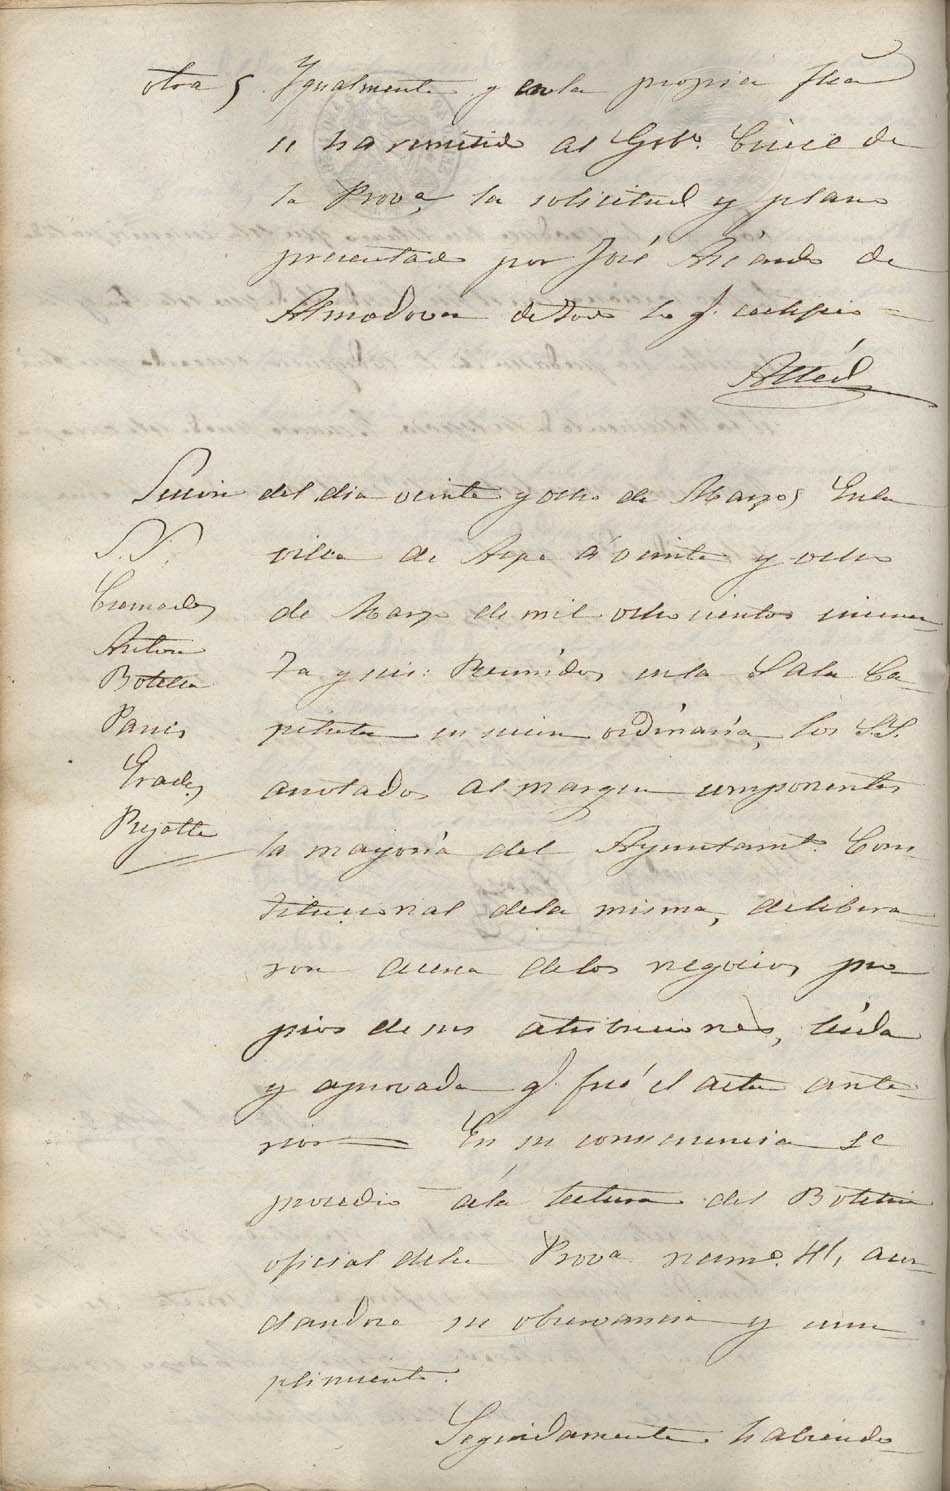 otra, Igualmente y en la propia fha
se ha remitido al Gobr. Civil de
la Prova, la solicitud y plano
presentado por José Aliando de
Almodovar de todo lo q. certifico =
Sesion del dia veinte y ocho de Marzo, En la
villa de Aspe á veinte y ocho
de Marzo de mil ochocientos cincuen-
ta y seis: Reunidos en la Sala Ca-
pitular en sesion ordinaria, los S.S.
anotados al margen componentes
la mayoria del Ayuntamto. Cons-
titucional dela misma, delibera-
ron acerca delos negocios pro-
pios de sus atribuciones, leida
y aprovada q. fué el acta ante-
rior = En su consecuencia se
procedio ála lectura del Boletin
oficial dela Prova. numo. 41, acor-
dandose su observancia y cum-
plimiento.
Seguidamente habiendo
S.S.
Cremades
Anton
Botella
Pavis
Prades